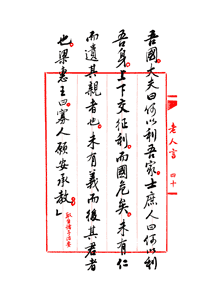 吾國大夫曰何以利吾家士庶人曰何以利
吾身上下交征利而國危矣未有仁
而遺其親者也未有義而後其君者
也梁惠王曰寡人願安承教
老人言
四十